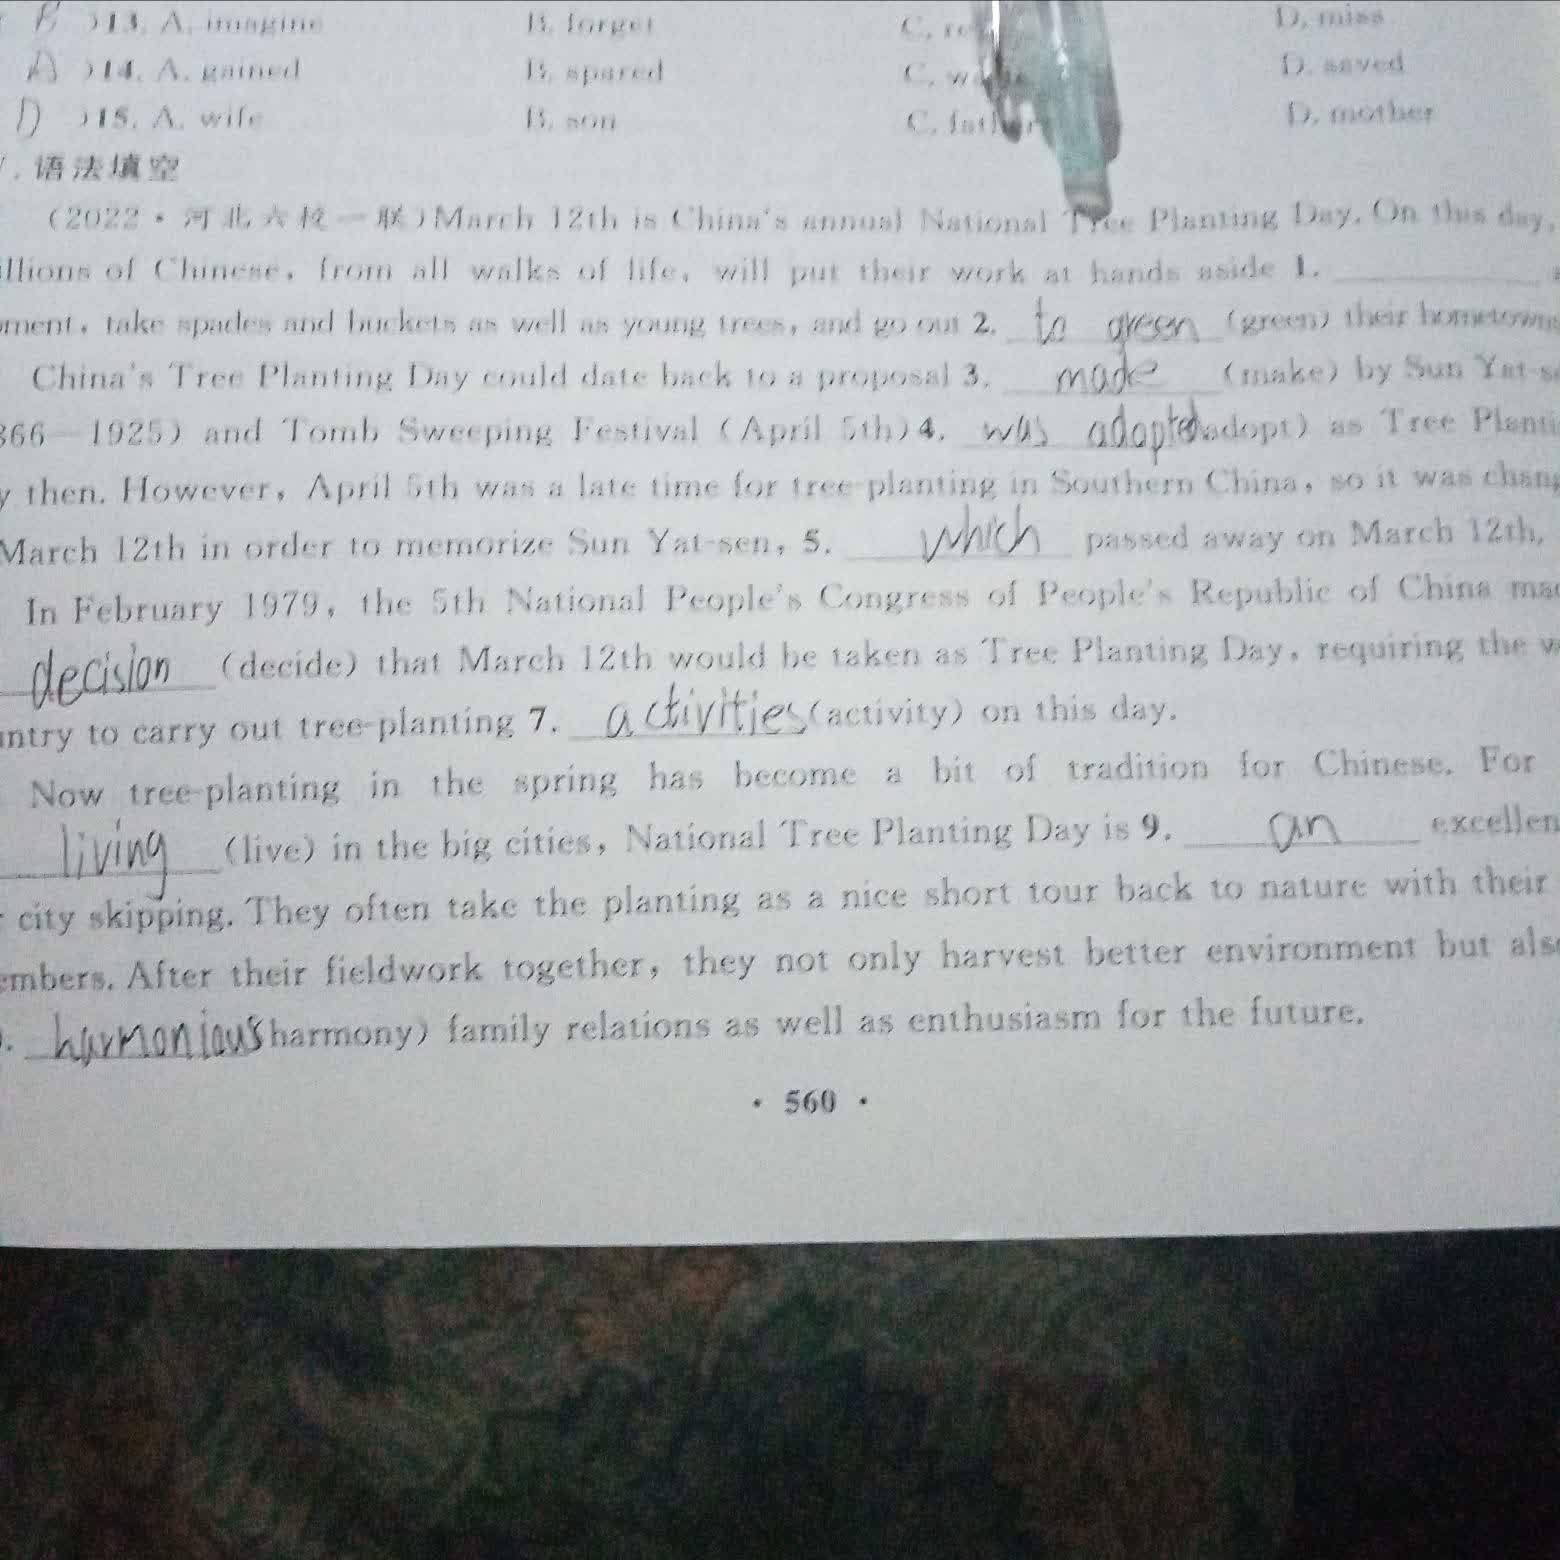 B )13. A. imagine B. forget C. D. miss
A )14. A. gained B. spared C. D. saved
D )15. A. wife B. son C. father D. mother
. 语法填空
(2022·河北六校一联)March 12th is China's annual National Tree Planting Day. On this day,
of Chinese, from all walks of life, will put their work at hands aside 1.
take spades and buckets as well as young trees, and go out 2. to green (green) their hometowns
China's Tree Planting Day could date back to a proposal 3. made (make) by Sun
1925) and Tomb Sweeping Festival (April 5th)4. was adopted adopt) as Tree
then. However, April 5th was a late time for tree-planting in Southern China, so it was
March 12th in order to memorize Sun Yat-sen, 5. which passed away on March 12th,
In February 1979, the 5th National People's Congress of People's Republic of China
decision (decide) that March 12th would be taken as Tree Planting Day, requiring the
to carry out tree-planting 7. activities (activity) on this day.
Now tree-planting in the spring has become a bit of tradition for Chinese. For
living (live) in the big cities, National Tree Planting Day is 9. an
city skipping. They often take the planting as a nice short tour back to nature with their
After their fieldwork together, they not only harvest better environment but
. harmonious harmony) family relations as well as enthusiasm for the future.
· 560 ·